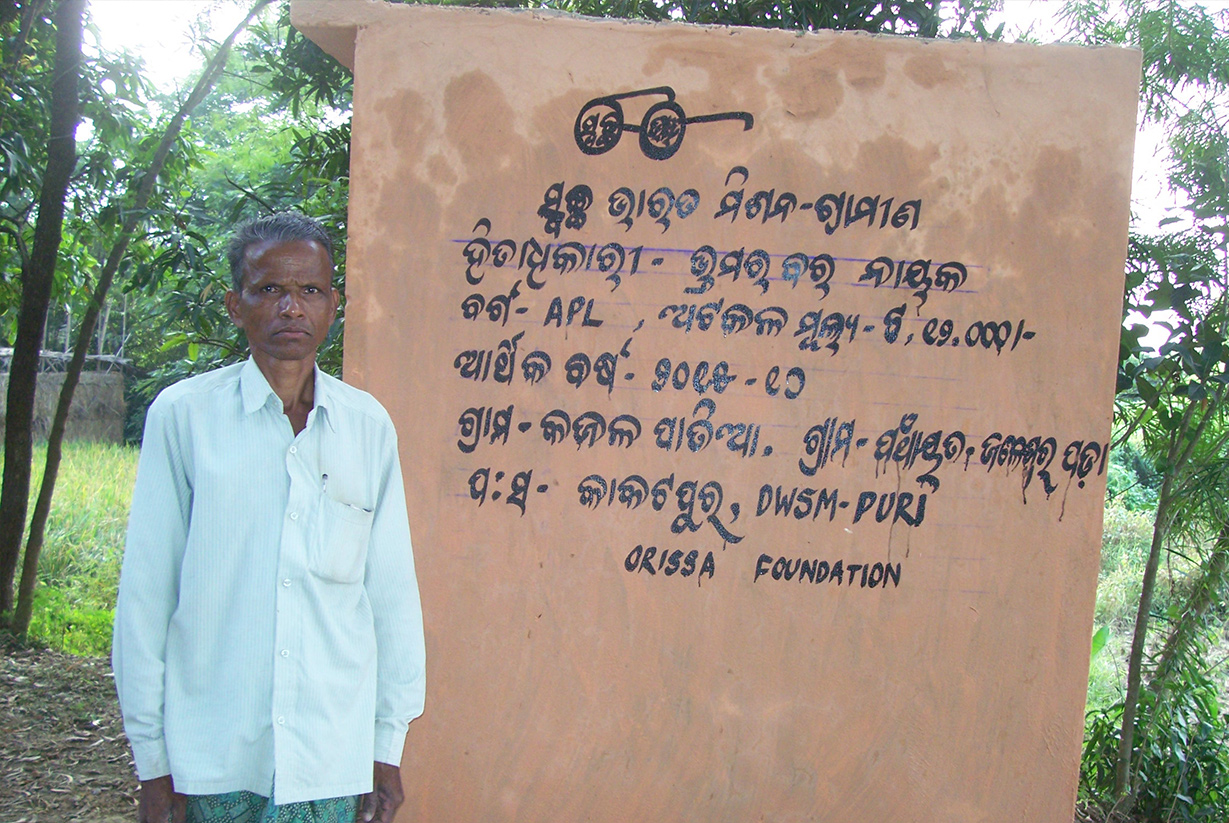 ସ୍ୱଚ୍ଛ
ସ୍ୱଚ୍ଛ ଭାରତ ମିଶନ-ଗ୍ରାମୀଣ
ହିତାଧିକାରୀ - ଭ୍ରମର ବର ନାୟକ
ବର୍ଗ - APL , ଅଟକଳ ମୂଲ୍ୟ - ଟ, ୧୨,୦୦୦/-
ଆର୍ଥିକ ବର୍ଷ - ୨୦୧୫ - ୧୦
ଗ୍ରାମ - କଜଳ ପାଟିଆ. ଗ୍ରାମ - ପଁଚାୟତ, ଜଳେଶ୍ୱର ପଡ଼ା
ପ:ସ - କାକଟପୁର, DWSM-PURI
ORISSA FOUNDATION